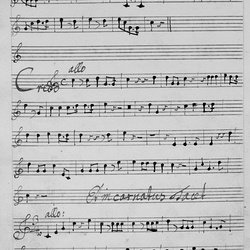 allo
Credo
Et incarnatus Tacet
allo: